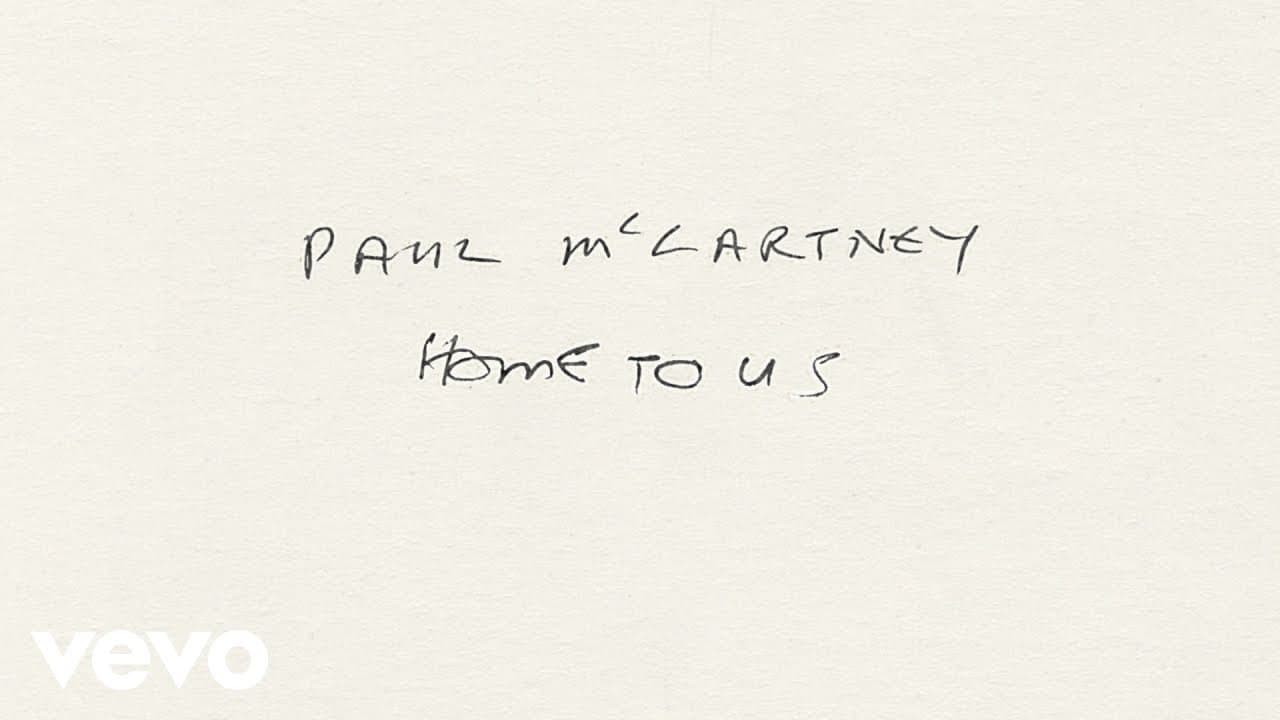 PAUL McCARTNEY
HOME TO US
vevo